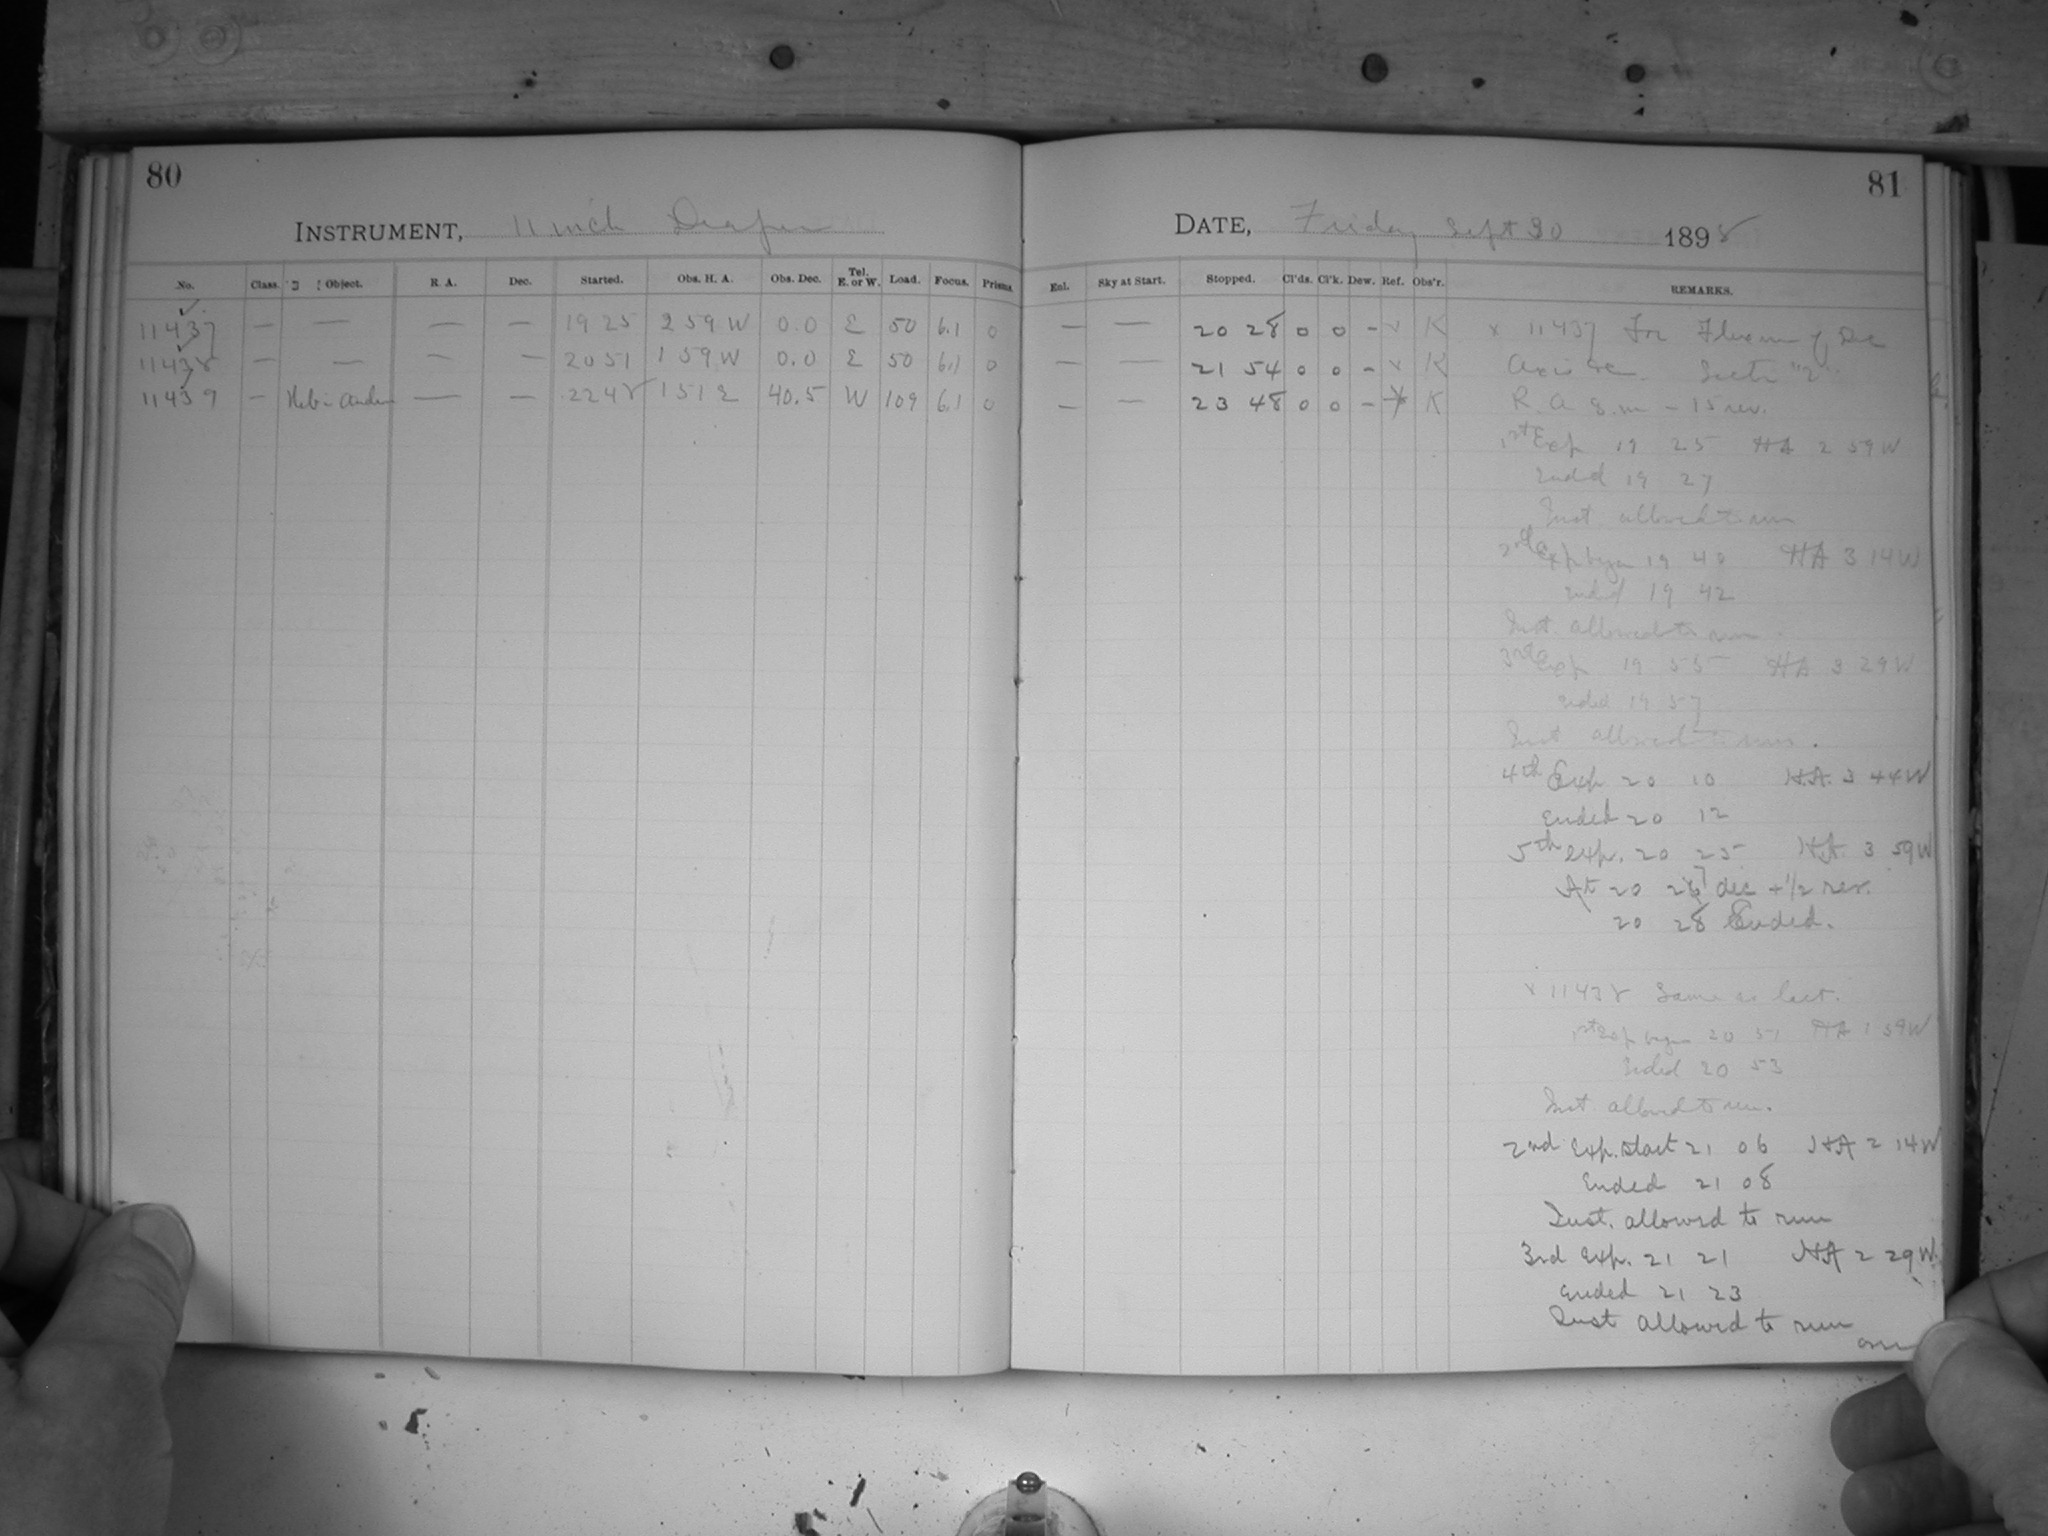 80
INSTRUMENT, 11 inch Draper
No. Class. Object. R. A. Dec. Started. Obs. H. A. Obs. Dec. Tel. E. or W. Load. Focus. Prisms.
11437 — — — — 19 25 2 59 W 0.0 E 50 6.1 0
11438 — — — — 20 51 1 59 W 0.0 E 50 6.1 0
11439 — — — 22 48 1 51 E 40.5 W 109 6.1 0
81
DATE, Friday Sept 30 1898
Sky at Start. Stopped. Cl'ds. Cl'k. Dew. Ref. Obs'r. REMARKS.
— — 20 28 0 0 - x K x 11437 For Flexure of Dec
— — 21 54 0 0 - x K Axis &c.
— — 23 48 0 0 - K R. A. 8. m - 15 rev.
1st Exp 19 25 HA 2 59 W
Ended 19 27
Inst. allowed to run
2nd Exp began 19 40 HA 3 14 W
ended 19 42
Inst. allowed to run.
3rd Exp 19 55 HA 3 29 W
ended 19 57
Inst allowed to run.
4th Exp 20 10 H.A. 3 44 W
Ended 20 12
5th exp. 20 25 H.A. 3 59 W
At 20 27 dec + 1/2 rev.
20 28 Ended.
x 11438 Same as last.
1st Exp began 20 51 HA 1 59 W
Ended 20 53
Inst. allowed to run.
2nd Exp. start 21 06 HA 2 14 W
Ended 21 08
Inst. allowed to run
3rd Exp. 21 21 HA 2 29 W.
Ended 21 23
Inst allowed to run
over